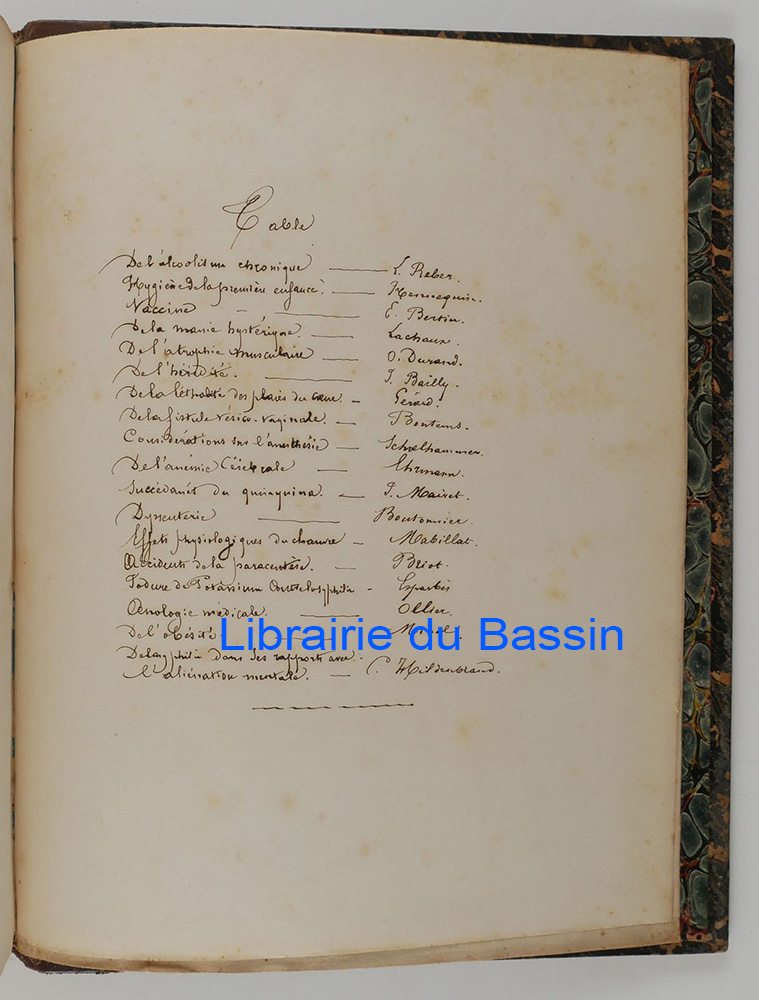 Table
De l'alcoolisme chronique — L. Reber.
Hygiène de la première enfance. — Hennequin.
Vaccine — E. Bertin.
De la manie hystérique. — Lachaux.
De l'atrophie musculaire — O. Durand.
De l'hérédité. — J. Bailly.
De la léthalité des plaies du cœur — Gérard.
De la fistule vésico-vaginale. — Bontems.
Considérations sur l'anesthésie — Schelhammer.
De l'anémie Cérébrale — Ehrmann.
Succédanés du quinquina. — J. Mairet.
Dyssenterie — Boutonnier.
Effets physiologiques du chanvre — Mabillat.
Accidents de la paracentèse. — Briot.
Iodure de Potassium Contre la syphilis - Esparbès
Œnologie médicale. — Ollier.
De l'obésité
Librairie du Bassin
De la syphilis dans ses rapports avec
l'aliénation mentale. — C. Hildenbrand.